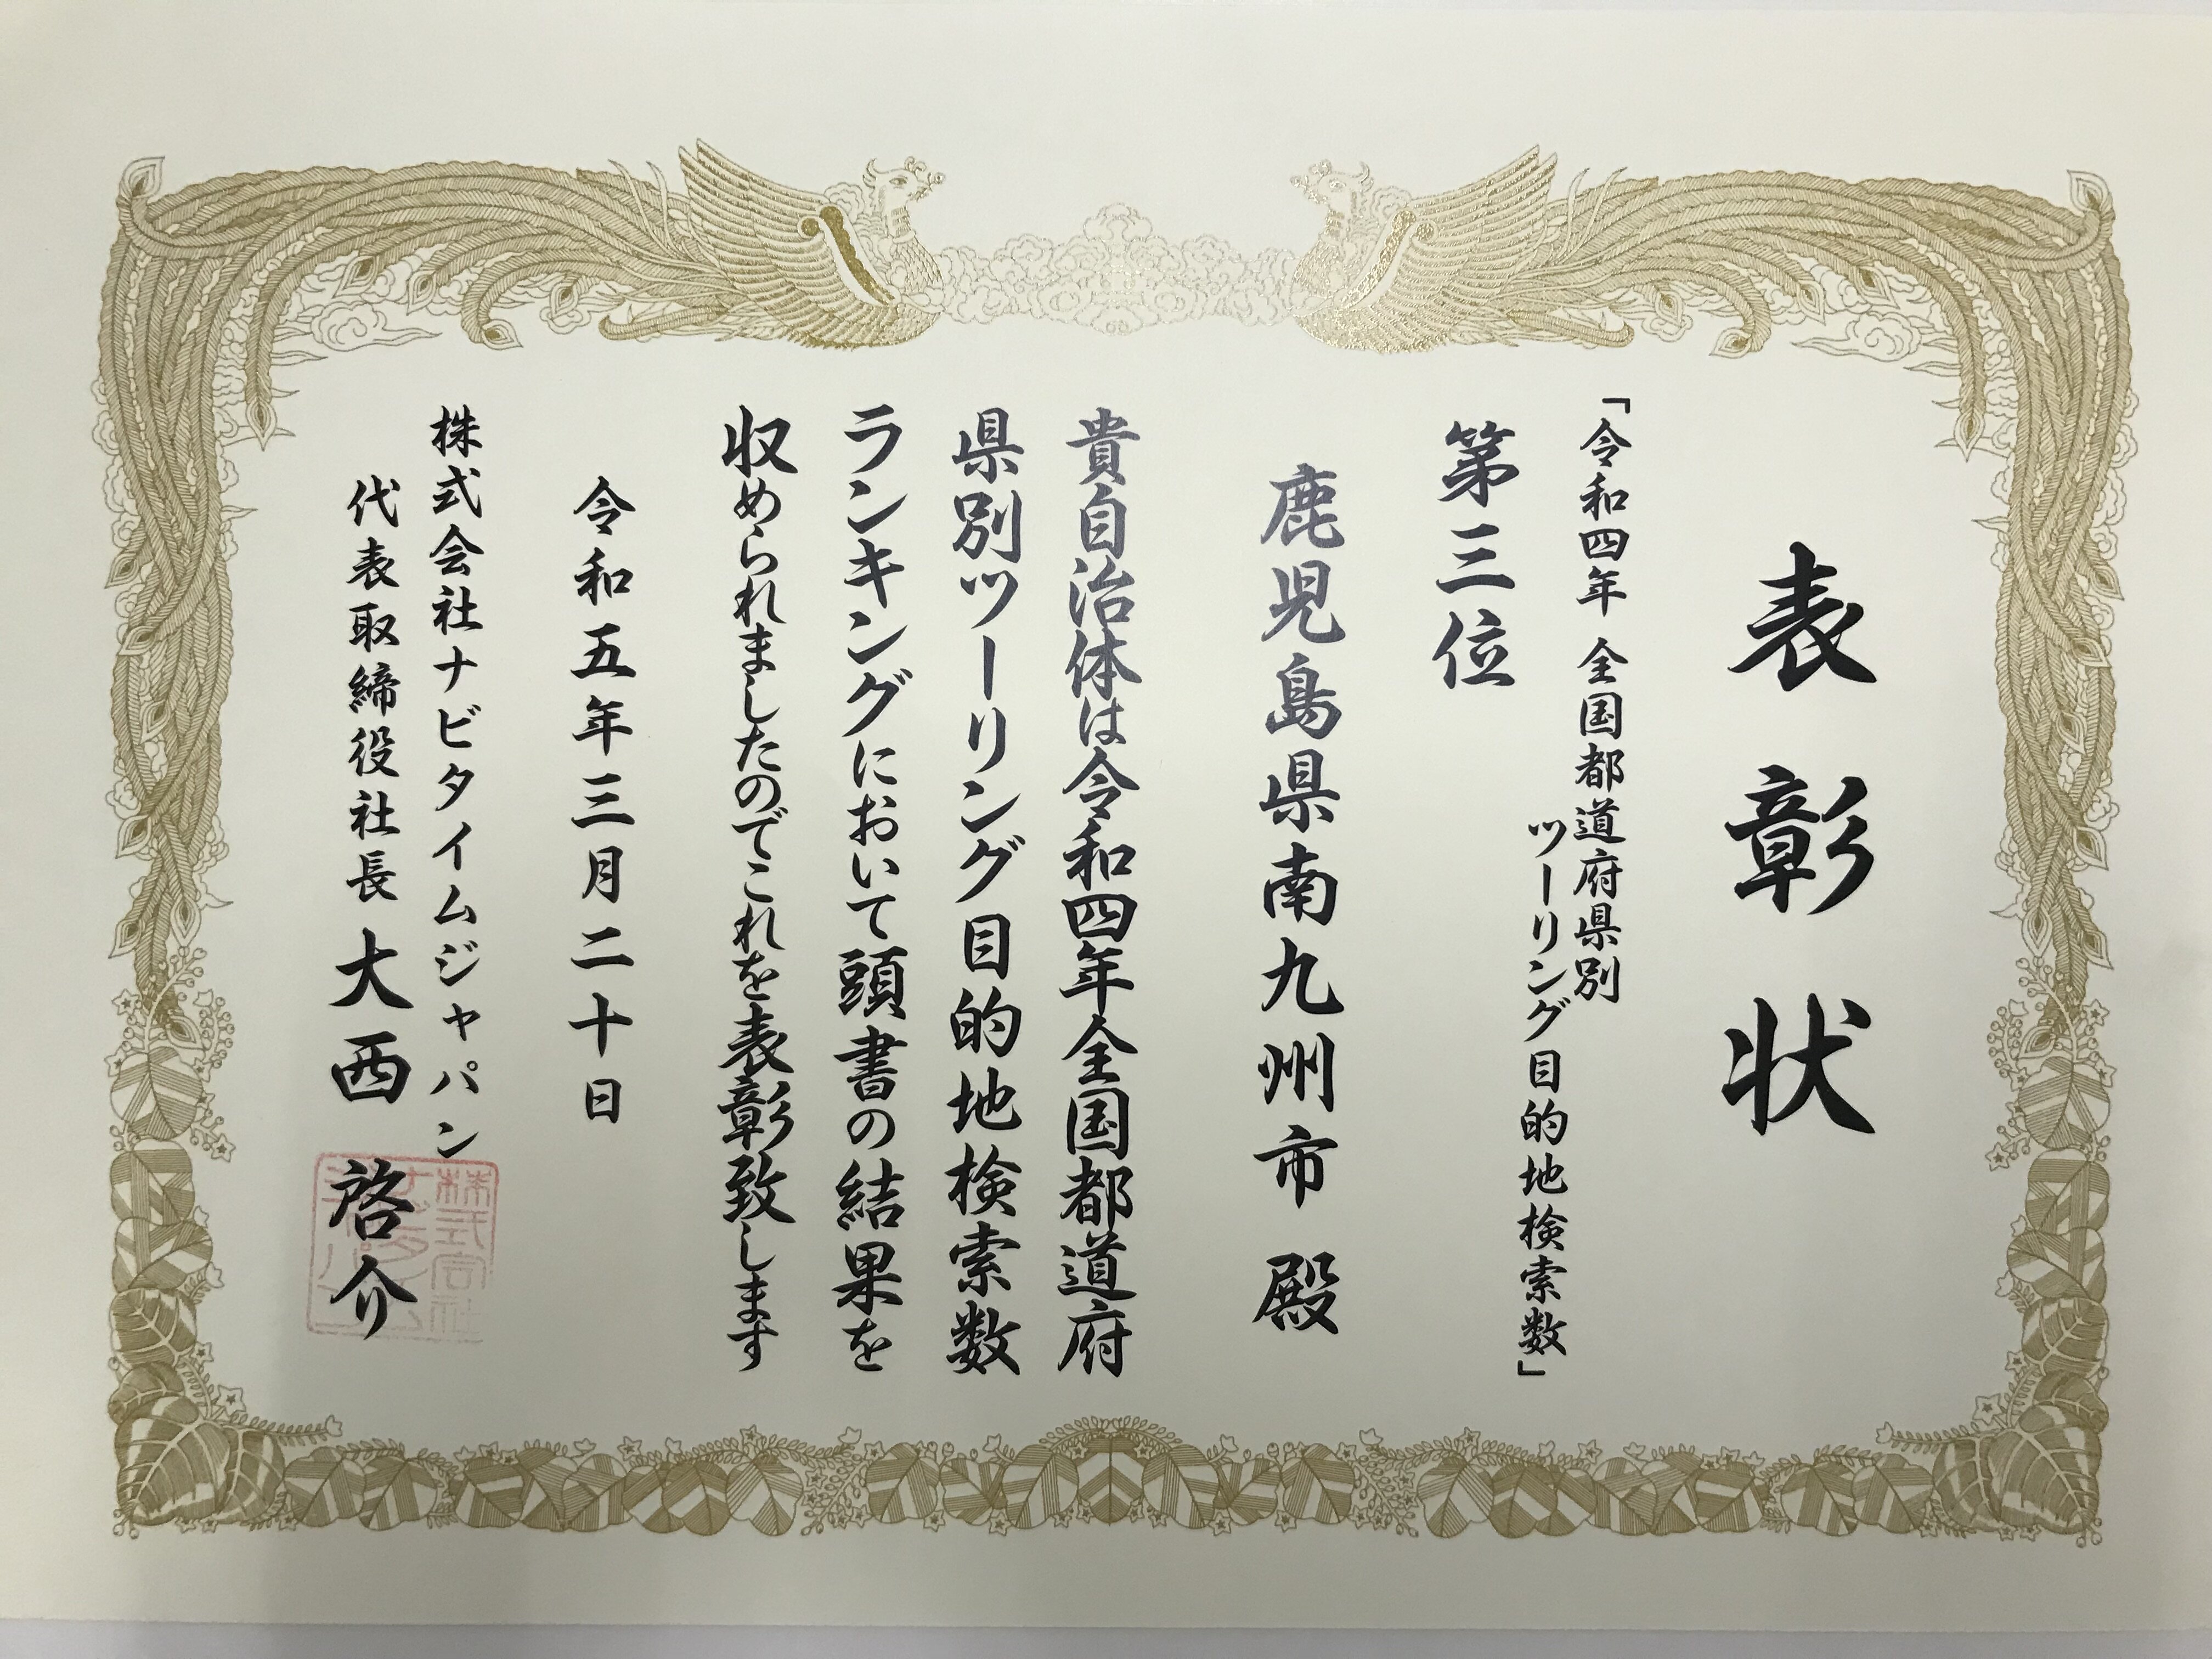 表彰状
「令和四年 全国都道府県別
ツーリング目的地検索数」
第三位
鹿児島県南九州市 殿
貴自治体は令和四年全国都道府
県別ツーリング目的地検索数
ランキングにおいて頭書の結果を
収められましたのでこれを表彰致します
令和五年三月二十日
株式会社ナビタイムジャパン
代表取締役社長 大西 啓介
株式会社